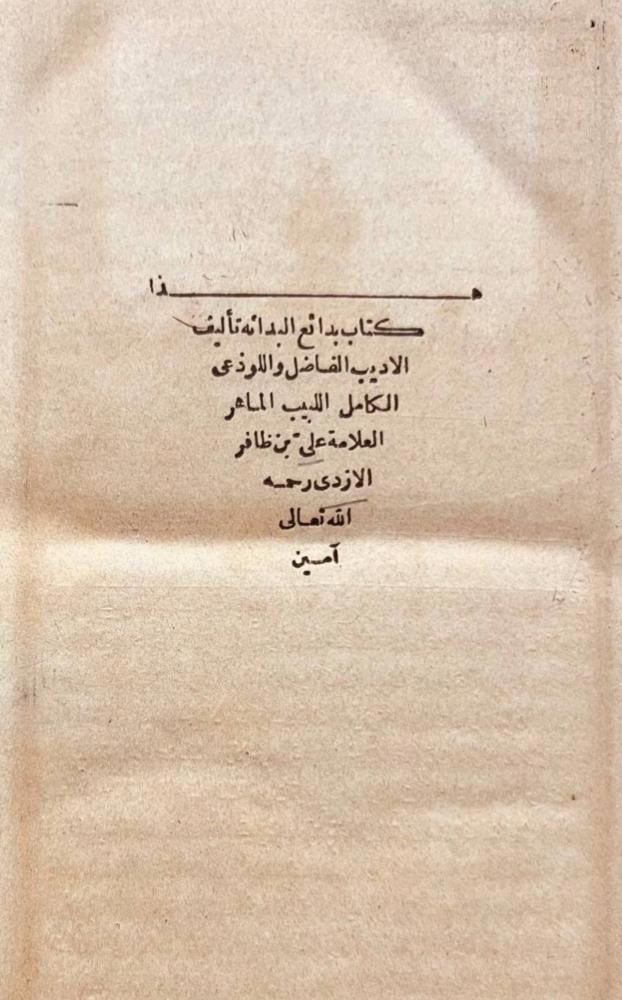 هـذا
كتاب بدائع البدائه تأليف
الاديب الفاضل واللوذعى
الكامل اللبيب الماهر
العلامة على بن ظافر
الازدى رحمه
الله تعالى
آمين